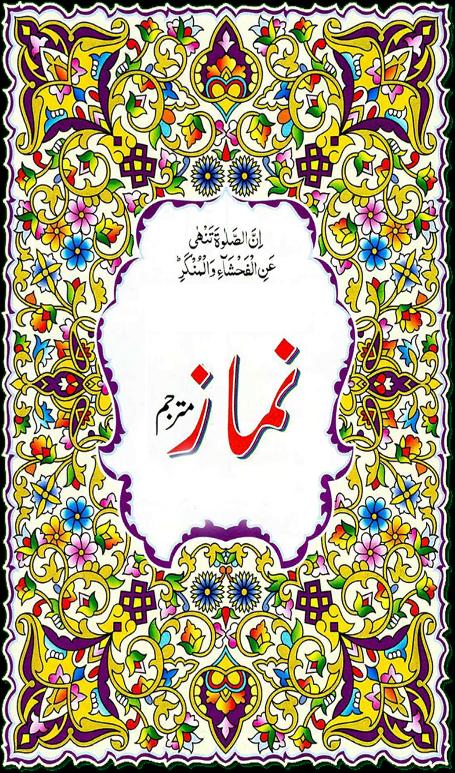 اِنَّ الصَّلٰوةَ تَنْهٰى
عَنِ الْفَحْشَآءِ وَالْمُنْكَرِؕ
نماز مترجم